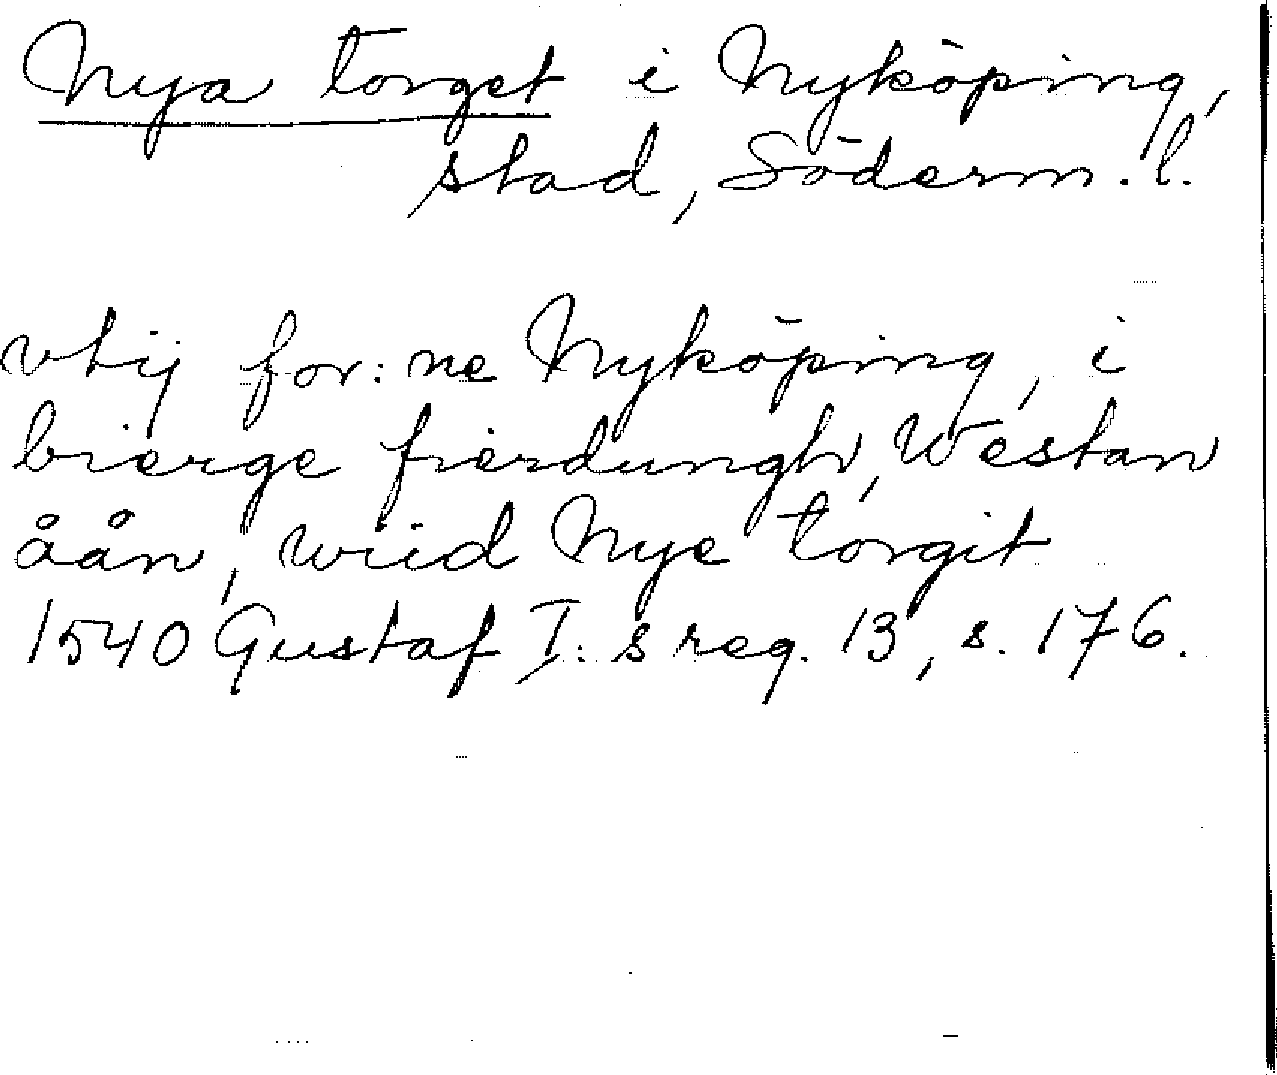 Nya torget i Nyköping,
stad, Söderm.l.
vtij for:ne Nyköping, i
bierge fierdungh, Westan
åån, wiid Nye torgit
1540 Gustaf I:s reg. 13, s. 176.